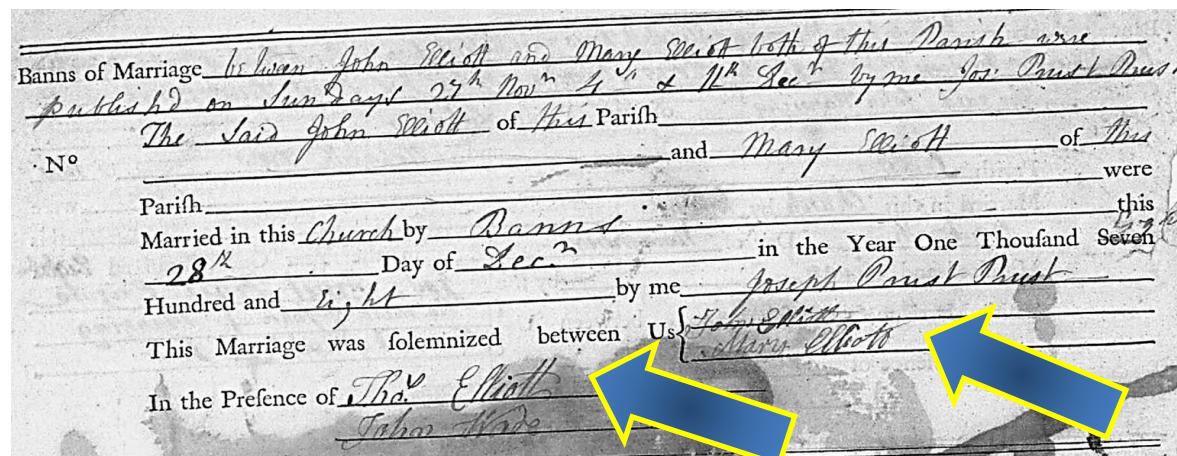 Banns of Marriage between John Elliott and Mary Elliott both of this Parish were
publish'd on Sundays 27th Novr 4th & 11th Decr by me Jos: Prust Prust
The Said John Elliott of this Pariſh
No and Mary Elliott of this
Pariſh were
Married in this Church by Banns this
28th Day of Decr in the Year One Thouſand Seven
Hundred and Eight by me Joseph Prust Prust
This Marriage was ſolemnized between Us John Elliott
Mary Elliott
In the Preſence of Thos. Elliott
John Wade